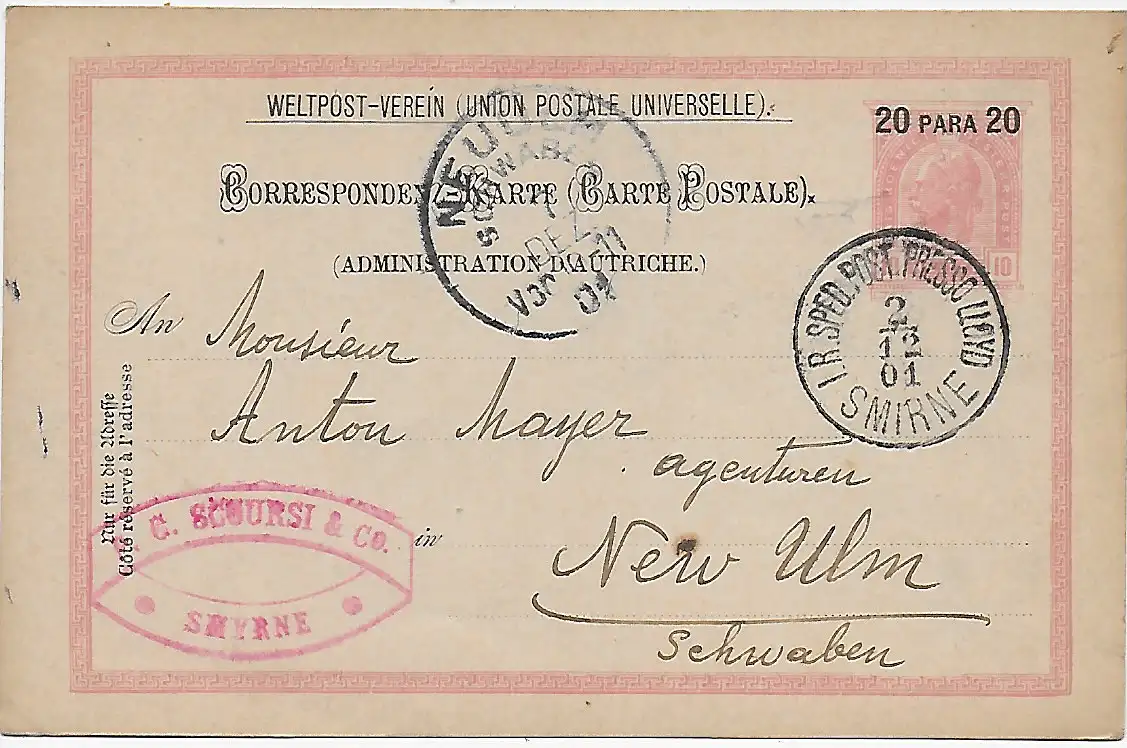 WELTPOST-VEREIN (UNION POSTALE UNIVERSELLE).
20 PARA 20
CORRESPONDENZ-KARTE (CARTE POSTALE).
(ADMINISTRATION D'AUTRICHE.)
10
NEU ULM
SCHWABEN
DEZ
01
I.R. SPED. POST. PRESSO LLOYD
2
12
01
SMIRNE
An Monsieur
Anton Mayer
agenturen
in New Ulm
Schwaben
Nur für die Adresse
Côté réservé à l'adresse
C. SCOURSI & Co.
SMYRNE